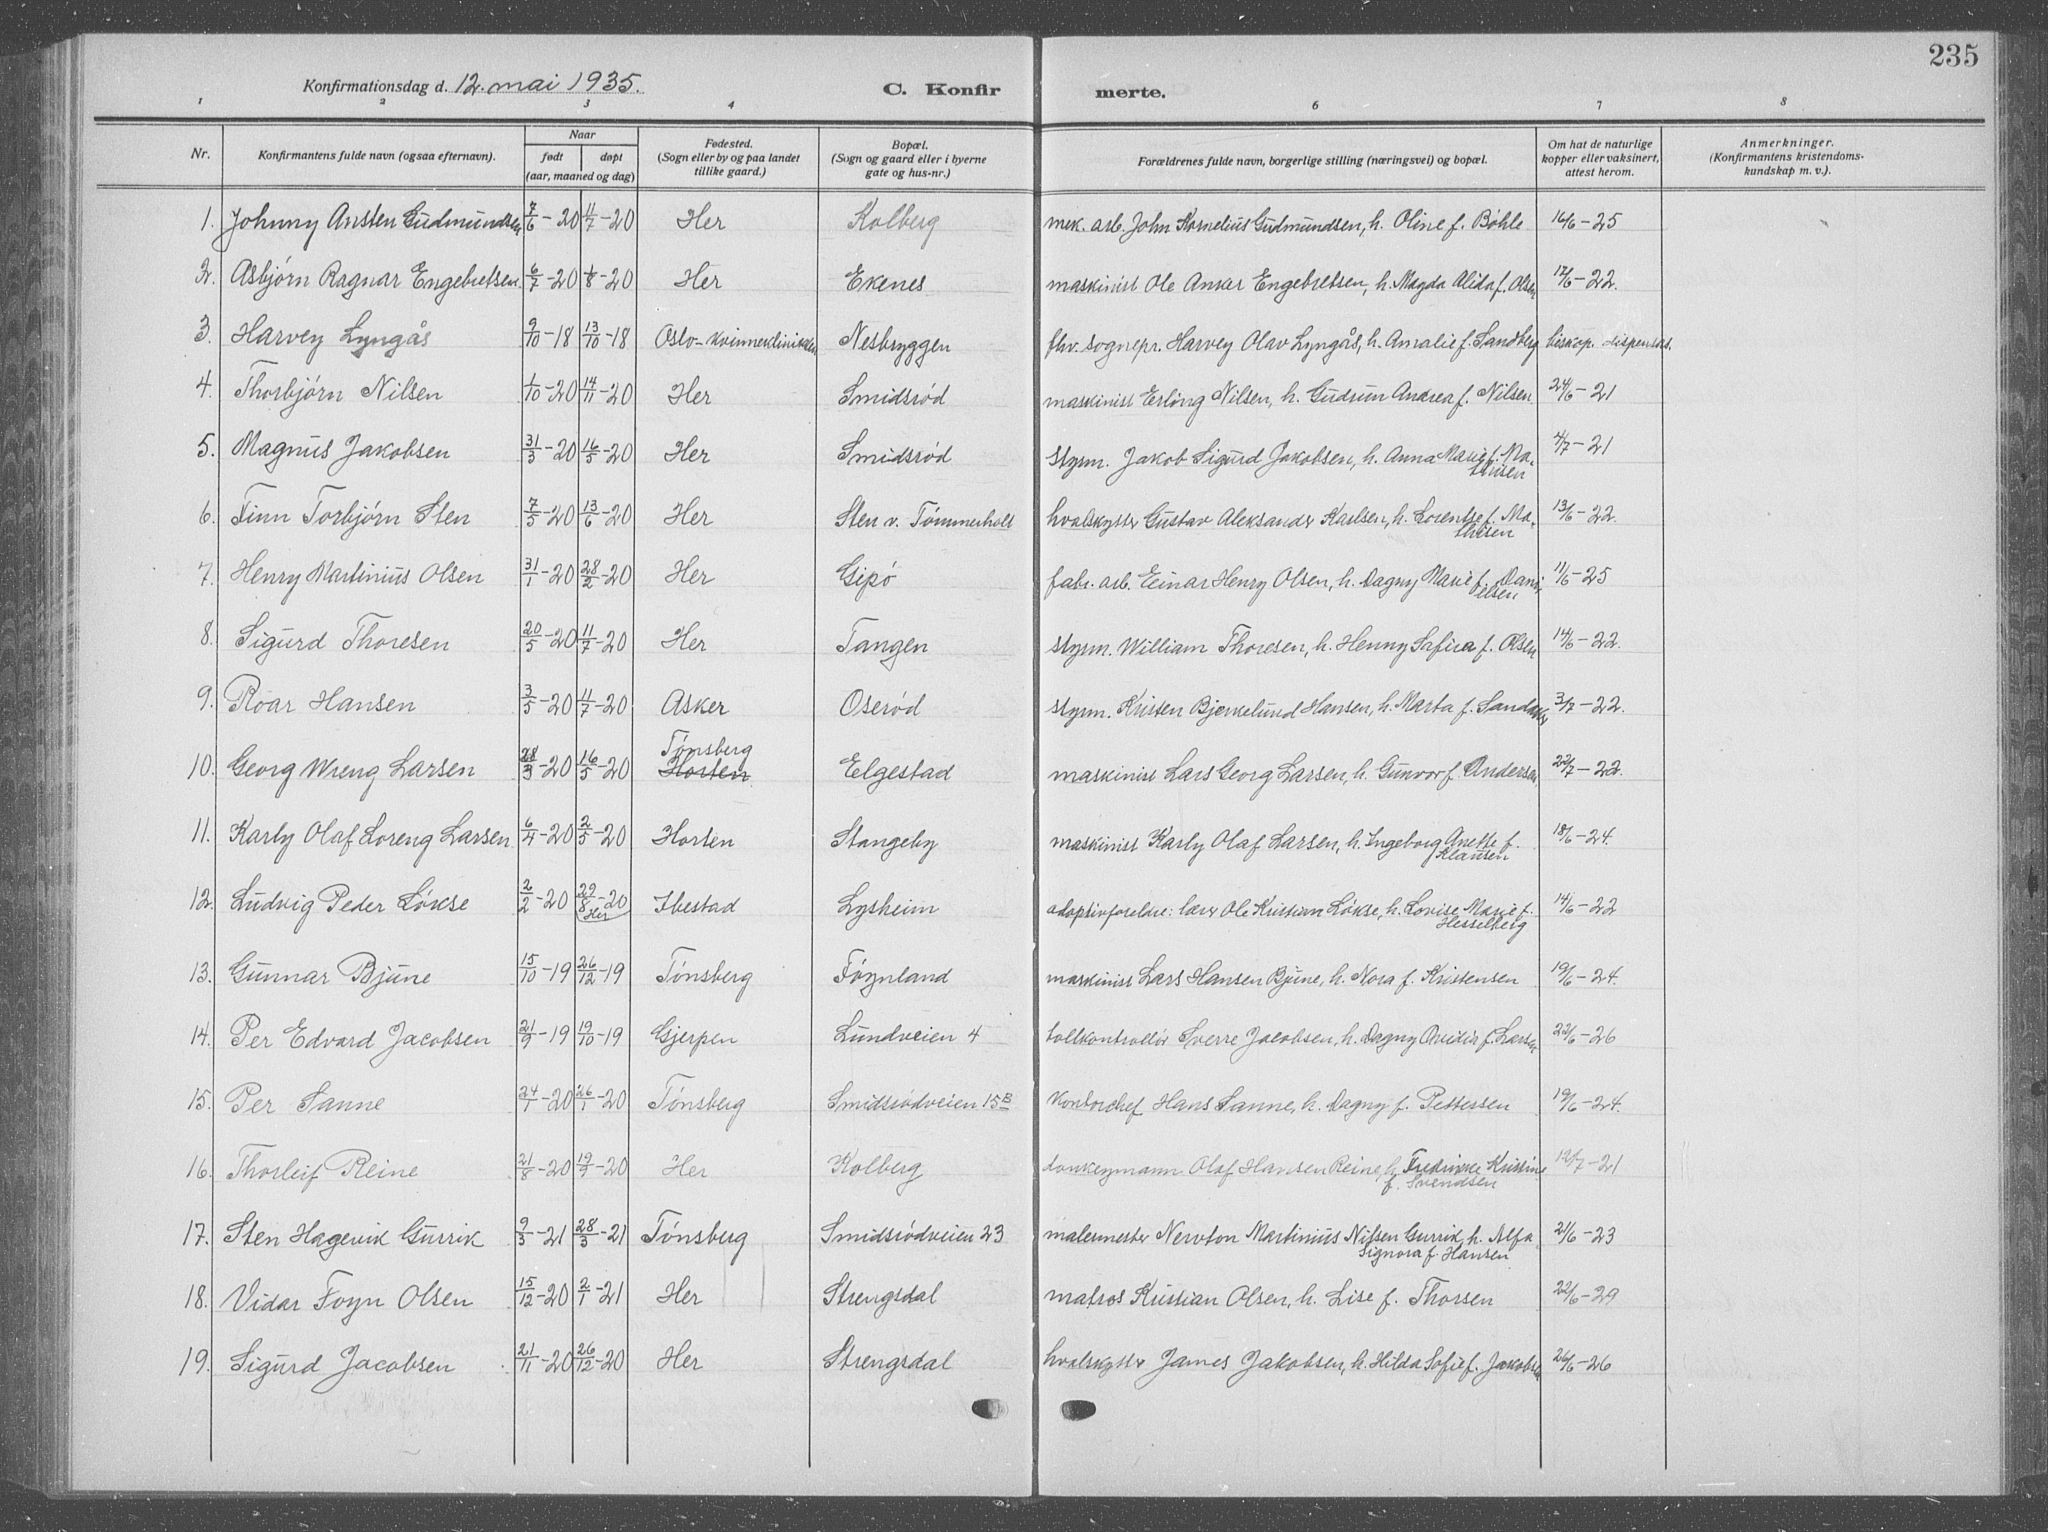 235
Konfirmationsdag d. 12. mai 1935. C. Konfirmerte.
1 2 3 4 5 6 7 8
Nr. Konfirmantens fulde navn (ogsaa efternavn). Naar født døpt (aar, maaned og dag) Fødested. (Sogn eller by og paa landet tillike gaard.) Bopæl. (Sogn og gaard eller i byerne gate og hus-nr.) Forældrenes fulde navn, borgerlige stilling (næringsvei) og bopæl. Om hat de naturlige kopper eller vaksinert, attest herom. Anmerkninger. (Konfirmantens kristendomskundskap m. v.).
1. Johnny Austen Gudmundsen 7/6-20 11/7-20 Her Kolberg mek. arb. John Kornelius Gudmundsen, h. Oline f. Bøhle 16/6-25
2. Asbjørn Ragnar Engebretsen. 6/7-20 1/8-20 Her Ekenes maskinist Ole Anker Engebretsen, h. Magda Alida f. Olsen 17/6-22.
3. Harvey Lyngås 9/10-18 13/10-18 Oslo-Kvinneklinikken Nesbryggen fhv. sognepr. Harvey Olav Lyngås, h. Amalie f. Sandberg biskop. dispensas.
4. Thorbjørn Nilsen 1/10-20 14/11-20 Her Smidsrød maskinist Erling Nilsen, h. Gudrun Andrea f. Nilsen 24/6-21
5. Magnus Jakobsen 31/3-20 16/5-20 Her Smidsrød styrm. Jakob Sigurd Jakobsen, h. Anna Marie f. Mathisen 4/7-21
6. Finn Torbjørn Sten 7/5-20 13/6-20 Her Sten v. Tømmerholt hvalskytter Gustav Aleksander Karlsen, h. Lorentse f. Mathisen 13/6-22.
7. Henry Martinius Olsen 31/1-20 28/2-20 Her Gipø fabr. arb. Einar Henry Olsen, h. Dagny Marie f. Danielsen 11/6-25
8. Sigurd Thoresen 20/5-20 11/7-20 Her Tangen styrm. William Thoresen, h. Henny Safira f. Olsen 14/6-22.
9. Roar Hansen 3/5-20 11/7-20 Asker Oserød styrm. Kristen Bjerkelund Hansen, h. Marta f. Sandaker 3/7-22.
10. Georg Wreng Larsen 28/3-20 16/5-20 Tønsberg Horten Elgestad maskinist Lars Georg Larsen, h. Gunvor f. Andersen, 22/7-22.
11. Karly Olaf Loreng Larsen 6/4-20 2/5-20 Horten Stangeby maskinist Karly Olaf Larsen, h. Ingeborg Anette f. Klausen 18/6-24.
12. Ludvig Peder Løkse 2/2-20 29/8-20 Her Ibestad Lysheim adoptivforeldre: lærer Ole Kristian Løkse, h. Lovise Marie f. Hesselberg 14/6-22
13. Gunnar Bjune 15/10-19 26/12-19 Tønsberg Føynland maskinist Lars Hansen Bjune, h. Nora f. Kristensen 19/6-24.
14. Per Edvard Jacobsen 21/9-19 19/10-19 Gjerpen Lundveien 4 tollkontrollør Sverre Jacobsen, h. Dagny Ovidia f. Larsen 22/6-26
15. Per Sanne 24/1-20 26/1-20 Tønsberg Smidsrødveien 15B Kontorchef Hans Sanne, h. Dagny f. Pettersen 19/6-24.
16. Thorleif Reine 21/8-20 19/9-20 Her Kolberg donkeymann Olaf Hansen Reine, h. Fredrikke Kristine f. Svendsen 12/7-21
17. Sten Hagevik Gurrik 9/3-21 28/3-21 Tønsberg Smidsrødveien 23 malermester Newton Martinius Nilsen Gurrik, h. Alfa Signora f. Hansen 21/6-23
18. Vidar Foyn Olsen 15/12-20 2/1-21 Her Strengsdal matros Kristian Olsen, h. Lise f. Thorsen 22/6-29
19. Sigurd Jacobsen 21/11-20 26/12-20 Her Strengsdal hvalskytter James Jakobsen, h. Hilda Sofie f. Jakobsen 26/6-26